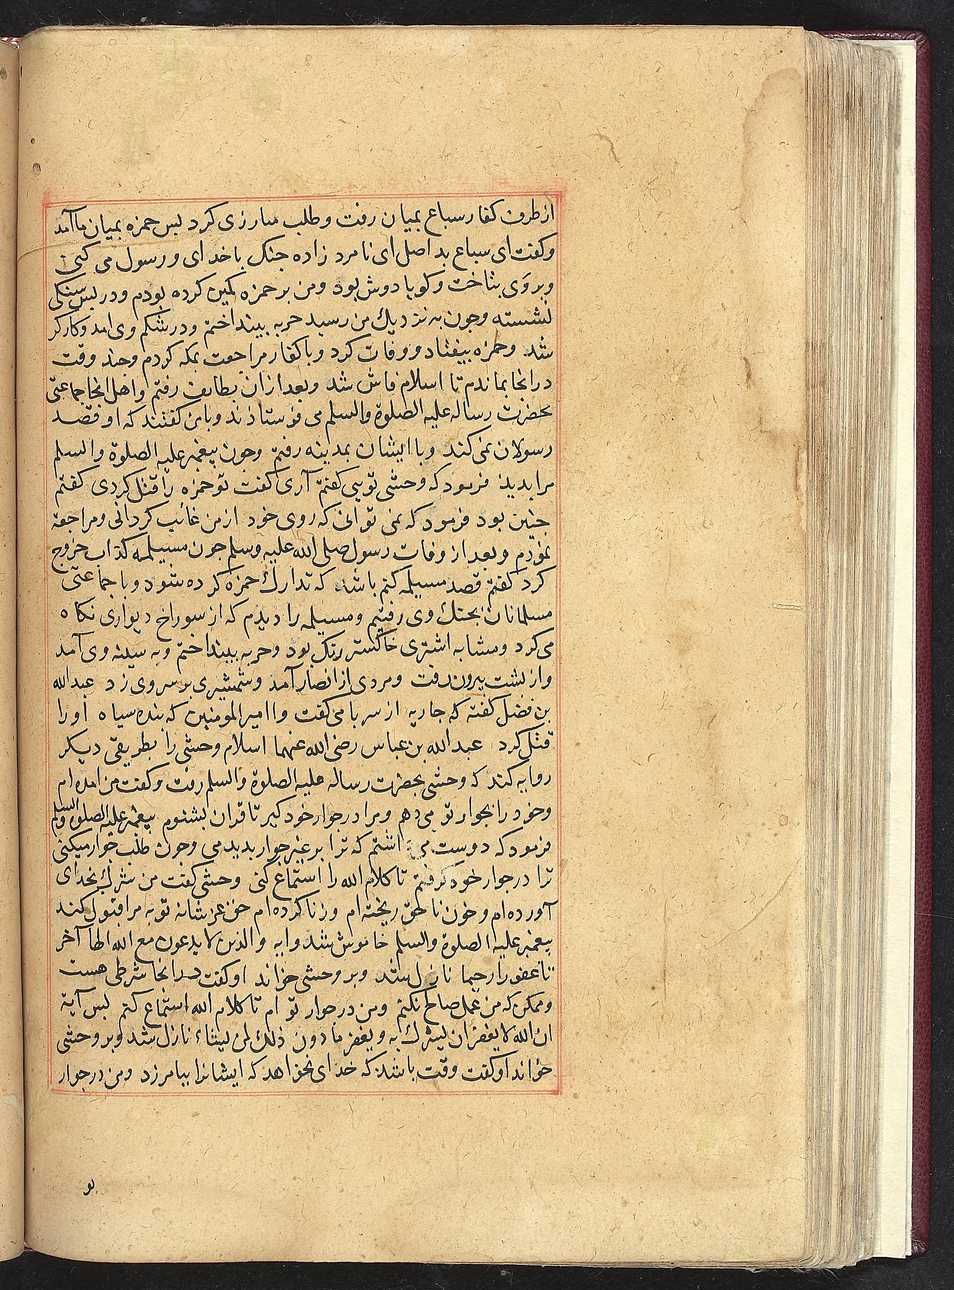 از طرف کفار سباع بمیان رفت و طلب مبارزی کرد لبس حمزه بمیان ما آمد
وکفت ای سباع بد اصل ای نامرد زاده جنک با خدای و رسول می کنی
و بروی بتاخت و کویا دوش بود ومن بر حمزه کمین کرده بودم و در لبس سنکی
نشسته و جون به نزدیک من رسید حربه بینداختم و در شکم وی امد و کارکر
شد و حمزه بیفتاد و وفات کرد و با کفار مراجعت بمکه کردم و جند وقت
در انجا بماندم تا اسلام فاش شد و بعد از ان بطایف رفتم و اهل انجا جماعتی
بحضرت رساله علیه الصلوة والسلم می فرستادند و با من کفتند که او قصد
رسولان نمی کند و با ایشان بمدینه رفتم و جون پیغمبر علیه الصلوة والسلم
مرا بدید فرمود که وحشی تویی کفتم آری کفت تو حمزه را قتل کردی کفتم
جنین بود فرمود که نمی توانی که روی خود از من غائب کردانی و مراجعة
نمودم و بعد از وفات رسول صلی الله علیه وسلم جون مسیلمه کذاب خروج
کرد کفتم قصد مسیلمه کنم باشد که تدارک حمزه کرده شود و با جماعتی
مسلمانان بجنک وی رفتیم و مسیلمه را دیدم که از سوراخ دیواری نکاه
می کرد و مشابه اشتری خاکستر رنک بود و حربه بینداختم و به سینه وی آمد
و از لبشت بیرون رفت و مردی از انصار آمد و شمشیری بر سر وی زد عبدالله
بن فضل کفته که جاریه از سر با می کفت وا امیر المومنین که بنده سیاه او را
قتل کرد عبدالله بن عباس رضی الله عنهما اسلام وحشی را بطریقی دیکر
روایه کند که وحشی بحضرت رساله علیه الصلوة والسلم رفت و کفت من امده ام
و خود را بجوار تو می دهم و مرا در جوار خود کیر تا قران بشنوم پیغمبر علیه الصلوة والسلم
فرمود که دوست می داشتم که ترا بر غیر جوار بدیدمی و جون طلب جوار میکنی
ترا در جوار خود کرفتم تا کلام الله را استماع کنی وحشی کفت من شرک بخدای
آورده ام و خون نا حق ریخته ام و زنا کرده ام حق عز شانه توبه مرا قبول کند
پیغمبر علیه الصلوة والسلم خاموش شد و ایه والذین لا یدعون مع الله الها آخر
تا غفورا رحیما نازل شد و بر وحشی خواند او کفت در انجا شرطی هست
و ممکن که من عمل صالح نکنم و من در جوار تو ام تا کلام الله استماع کنم لبس آیة
ان الله لا یغفر ان یشرک به و یغفر ما دون ذلک لمن یشاء نازل شد و بر وحشی
خواند او کفت وقت باشد که خدای نخواهد که ایشانرا بیامرزد و من در جوار
تو